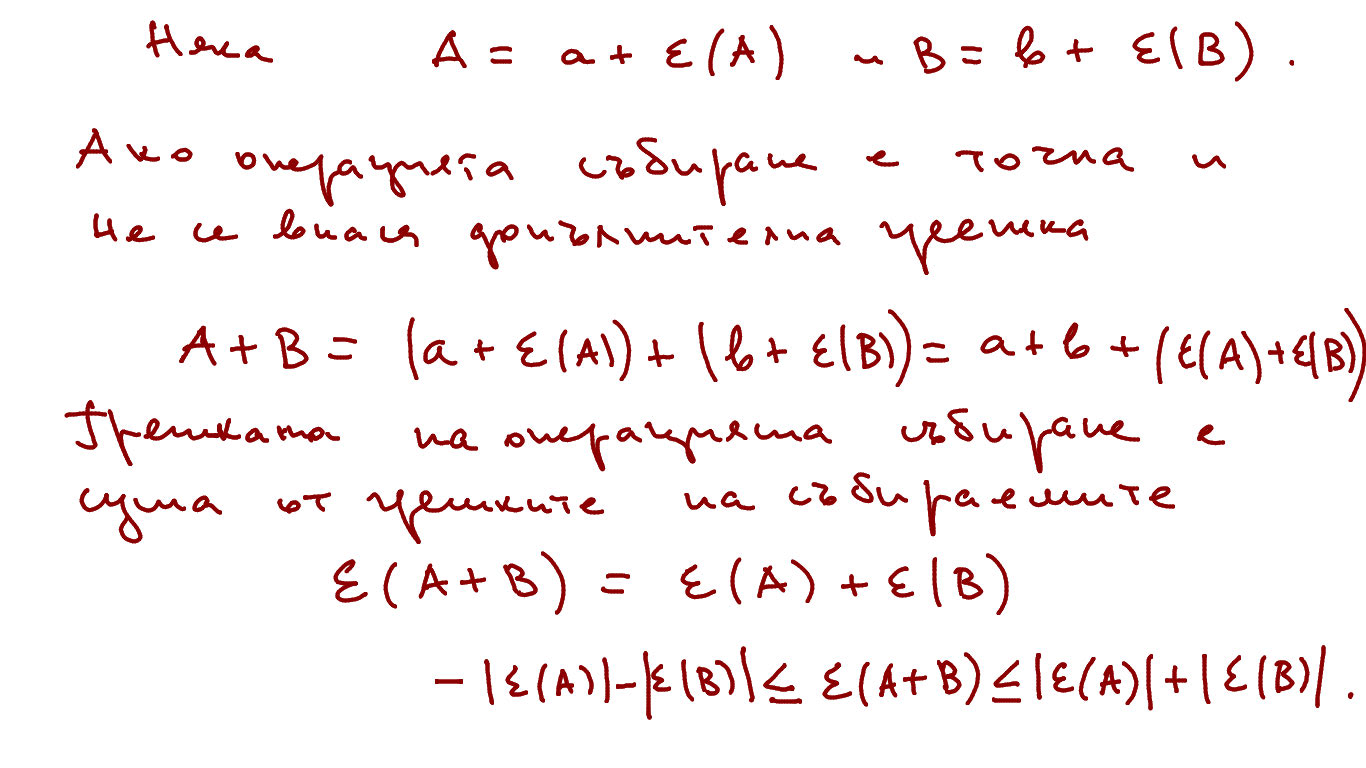 Нека A = a + ε(A) и B = b + ε(B) .
Ако операцията събиране е точна и
не се внася допълнителна грешка
A + B = (a + ε(A)) + (b + ε(B)) = a + b + (ε(A) + ε(B))
Грешката на операцията събиране е
сума от грешките на събираемите
ε(A + B) = ε(A) + ε(B)
- |ε(A)| - |ε(B)| ≤ ε(A+B) ≤ |ε(A)| + |ε(B)| .